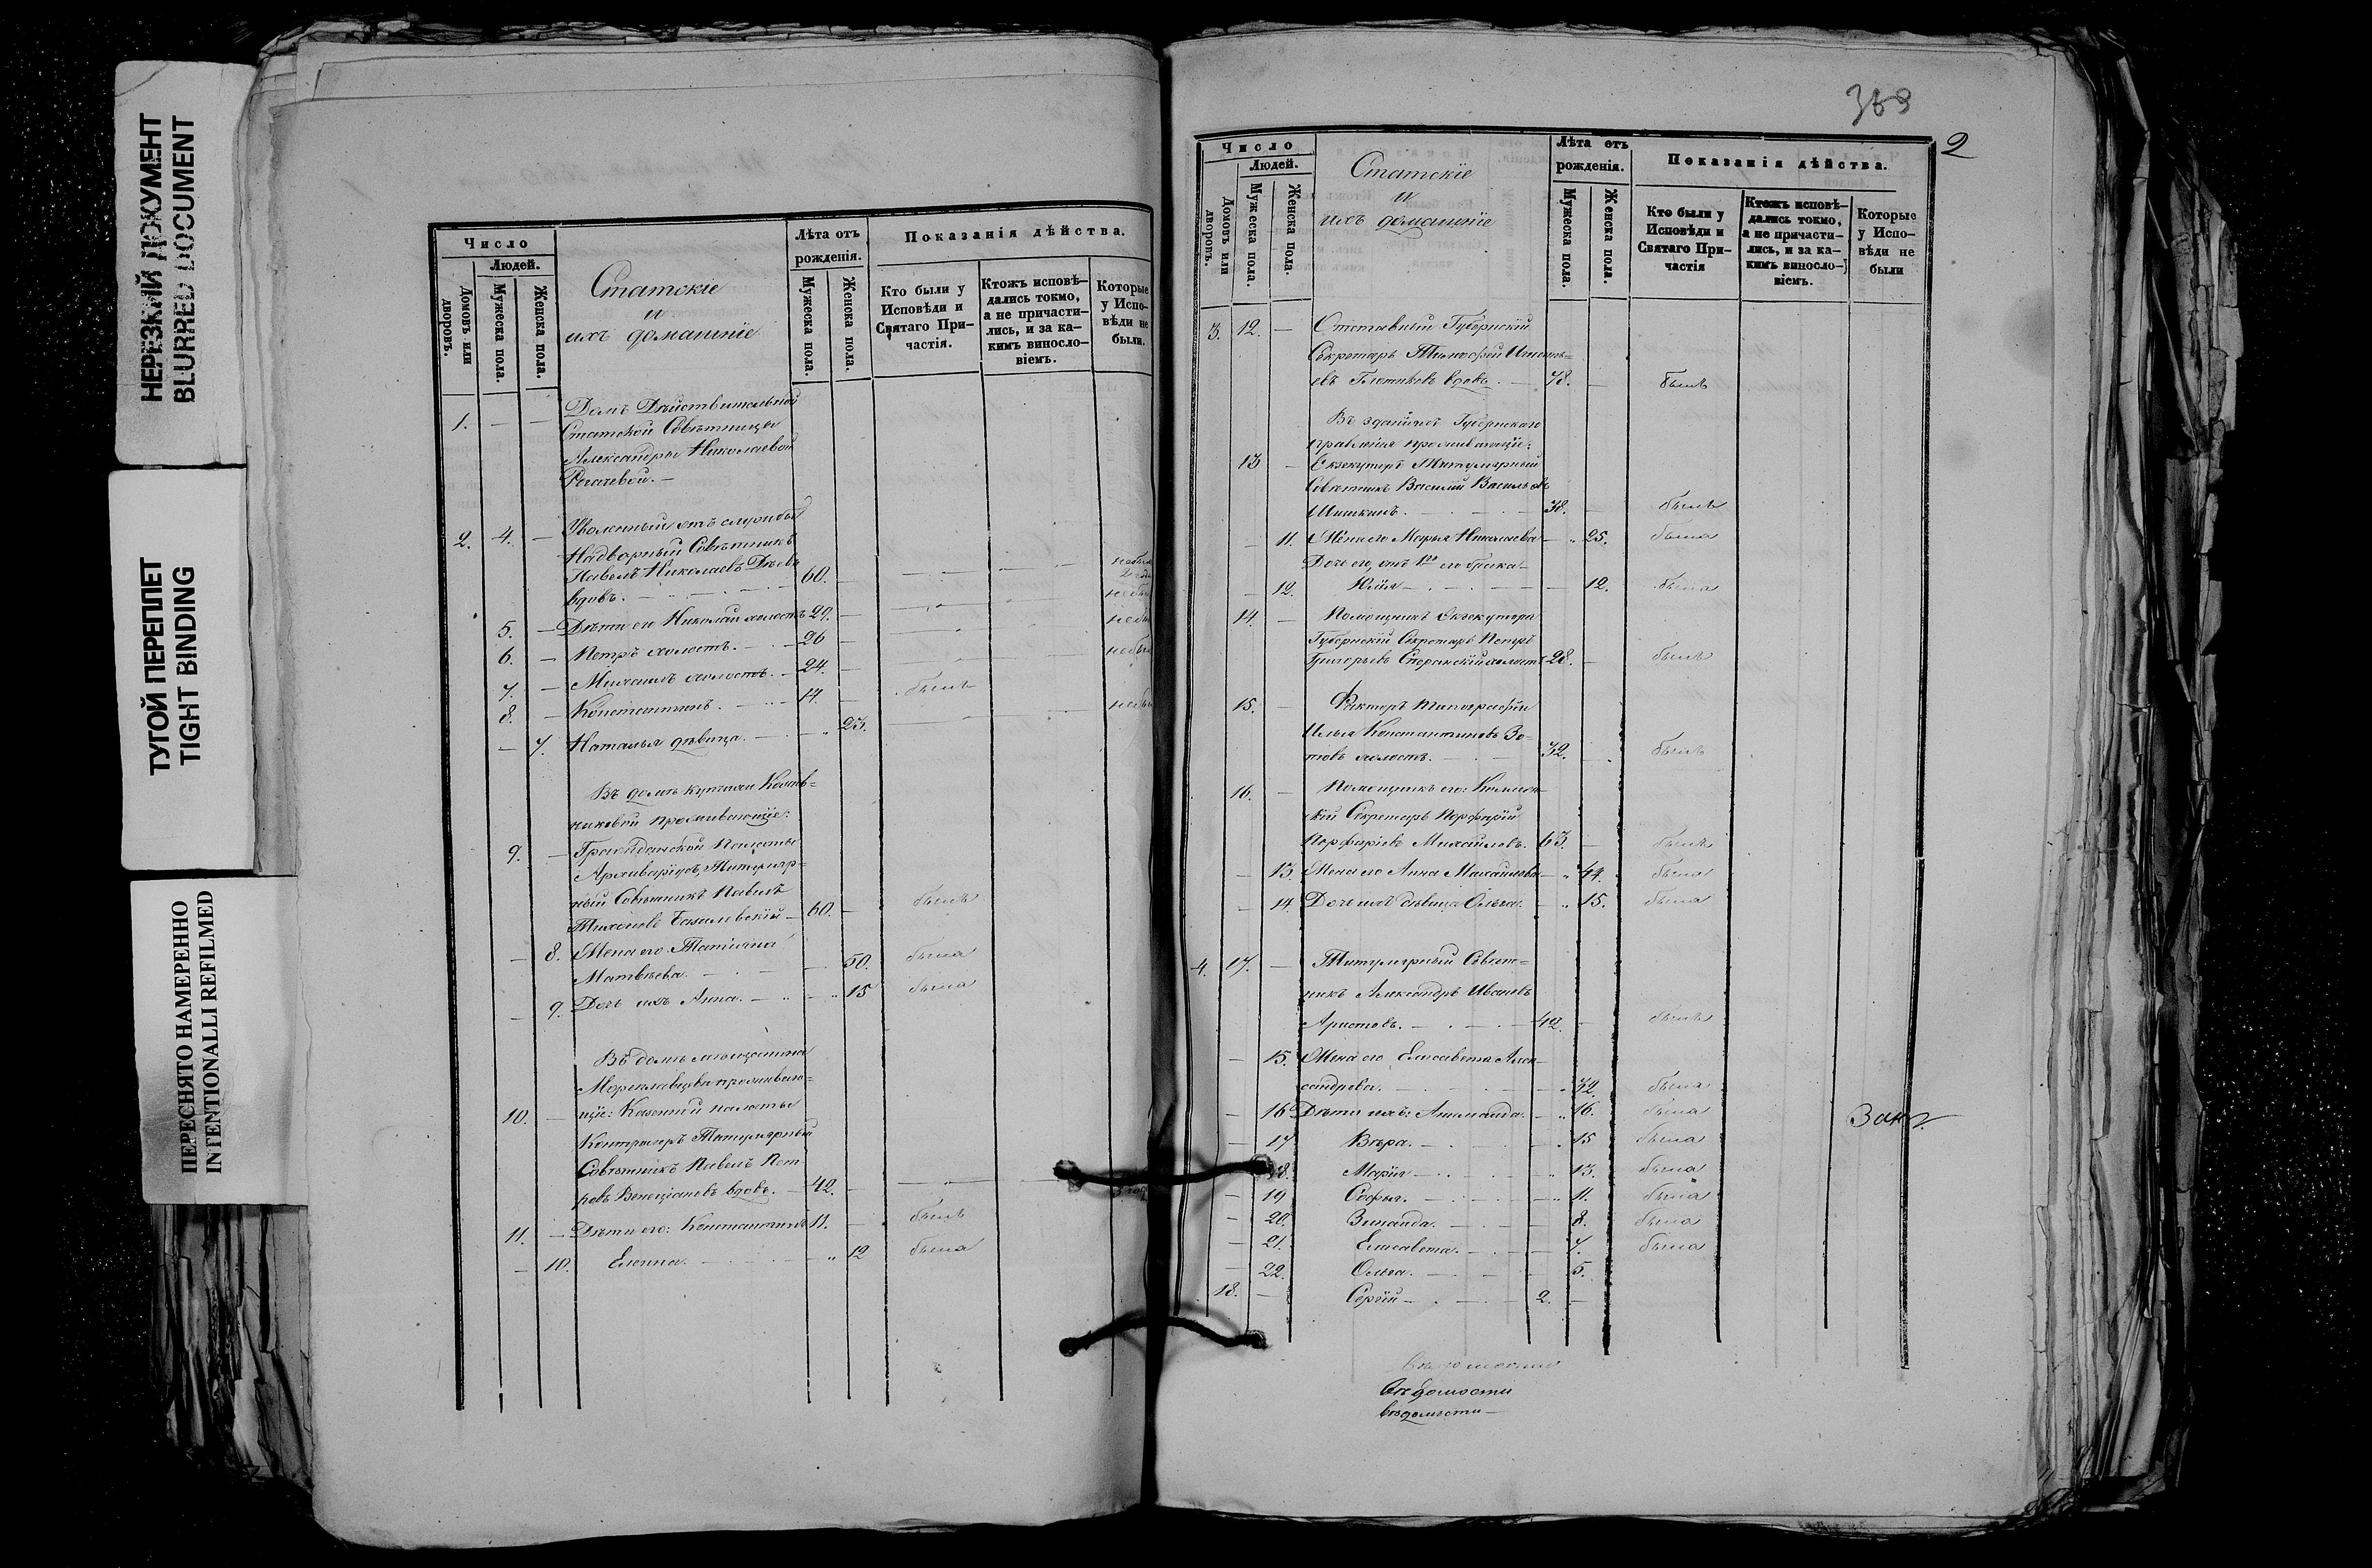 НЕРЕЗКИЙ ДОКУМЕНТ
BLURRED DOCUMENT
ТУГОЙ ПЕРЕПЛЕТ
TIGHT BINDING
ПЕРЕСНЯТО НАМЕРЕННО
INTENTIONALLI REFILMED
Число
Людей.
Домовъ или дворовъ.
Мужеска пола.
Женска пола.
Статскіе
и
ихъ домашніе
Лѣта отъ рожденія.
Мужеска пола.
Женска пола.
Показанія дѣйства.
Кто были у Исповѣди и Святаго Причастія.
Ктожъ исповѣдались токмо, а не причастились, и за какимъ винословіемъ.
Которые у Исповѣди не были.
1. — — Домъ Дѣйствительной
Статской Совѣтницы
Александры Николаевой
2. 4. — Уволенный отъ службы
Надворный Совѣтникъ
Павелъ Николаевъ 60. —
вдовъ.
5. — Дѣти его Николай холостъ 29. —
6. — Петръ холостъ. 26 —
7. — Михаилъ холостъ. 24. —
8. — Константинъ. 14. — былъ
— 7. Наталья дѣвица. 23.
Въ домѣ купчихи
проживающіе:
9. — Гражданской Палаты
Архиваріусъ, Титуляр-
ный Совѣтникъ Павелъ
Тихоновъ 60. — былъ
— 8. Жена его Татіяна
Матвѣева. 50. была
— 9. Дочь ихъ Анна. 15 была
Въ домѣ мѣщанина
проживаю-
10. — щіе: Казенной палаты
Контролеръ Титулярный
Совѣтникъ Павелъ Пет-
ровъ Венеціановъ вдовъ. 42. —
11. — Дѣти его: Константинъ 11. — былъ
— 10. Елена. 12 была
369
2
Число
Людей.
Домовъ или дворовъ.
Мужеска пола.
Женска пола.
Статскіе
и
ихъ домашніе
Лѣта отъ рожденія.
Мужеска пола.
Женска пола.
Показанія дѣйства.
Кто были у Исповѣди и Святаго Причастія
Ктожъ исповѣдались токмо, а не причастились, и за какимъ винословіемъ.
Которые у Исповѣди не были
3. 12. — Отставный Губернскій
Секретарь Тимофей Игнатье-
въ Плотниковъ вдовъ. 78. — былъ
Въ зданіяхъ Губернскаго
правленія проживающіе:
13 — Екзекуторъ Титулярный
Совѣтникъ Василій Васильевъ
Шишкинъ. 38. — былъ
— 11. Жена его Марья Николаева 25. была
Дочь его, отъ 1го его брака
— 12. Юлія 12. была
14. — Помощникъ Екзекутора
Губернскій Секретарь Петръ
Григорьевъ холостъ 28. — былъ
15. — Факторъ типографіи
Илья Константиновъ Зо-
товъ холостъ. 32. — былъ
16. — Помощникъ его:
Секретарь Порфирій
Порфиріевъ Михайловъ. 63. — былъ
— 13. Жена его Анна Михайлова 44. была
— 14. Дочь ихъ дѣвица Ольга. 15. была
4. 17. — Титулярный Совѣт-
никъ Александръ Ивановъ
Аристовъ. 42. — былъ
— 15. Жена его Елисавета Алек-
сандрова. 32. была
— 16 Дѣти ихъ: 16. была
— 17 Вѣра. 15 была
— 18. Марія 13. была
— 19 Софья. 11. была
— 20. Зинаида. 8. была
— 21. Елисавета. 7. была
— 22. Ольга. 5.
18. — Сергій 2. —
Вѣдомости
вѣдомости